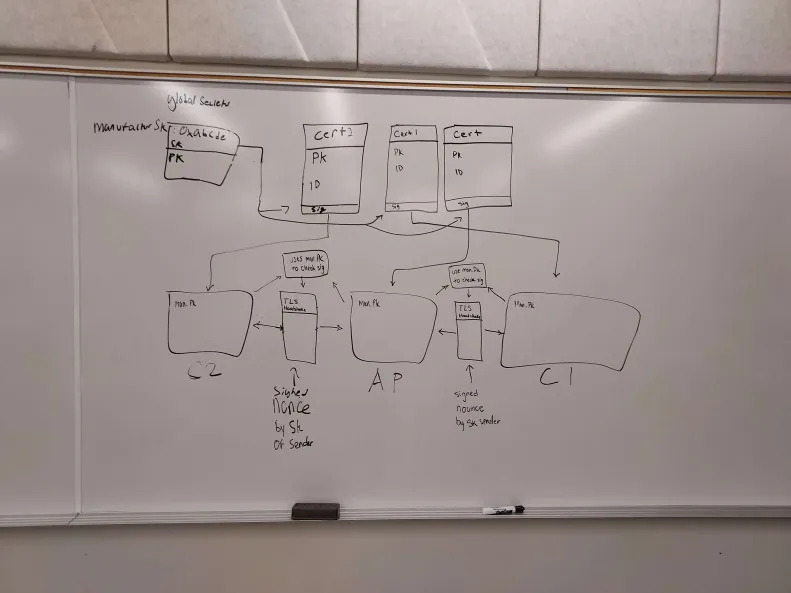 Global Secrets
Manufactor Sk
: 0xabcde
SK
PK
Cert2
PK
ID
Sig
Cert1
PK
ID
Sig
Cert
PK
ID
Sig
uses Man.Pk
to check sig
use Man.Pk
to check sig
Man.Pk
TLS
Handshake
Man.Pk
TLS
Handshake
Man.Pk
C2
AP
C1
Signed
nonce
by Sk
of Sender
signed
nounce
by sk sender